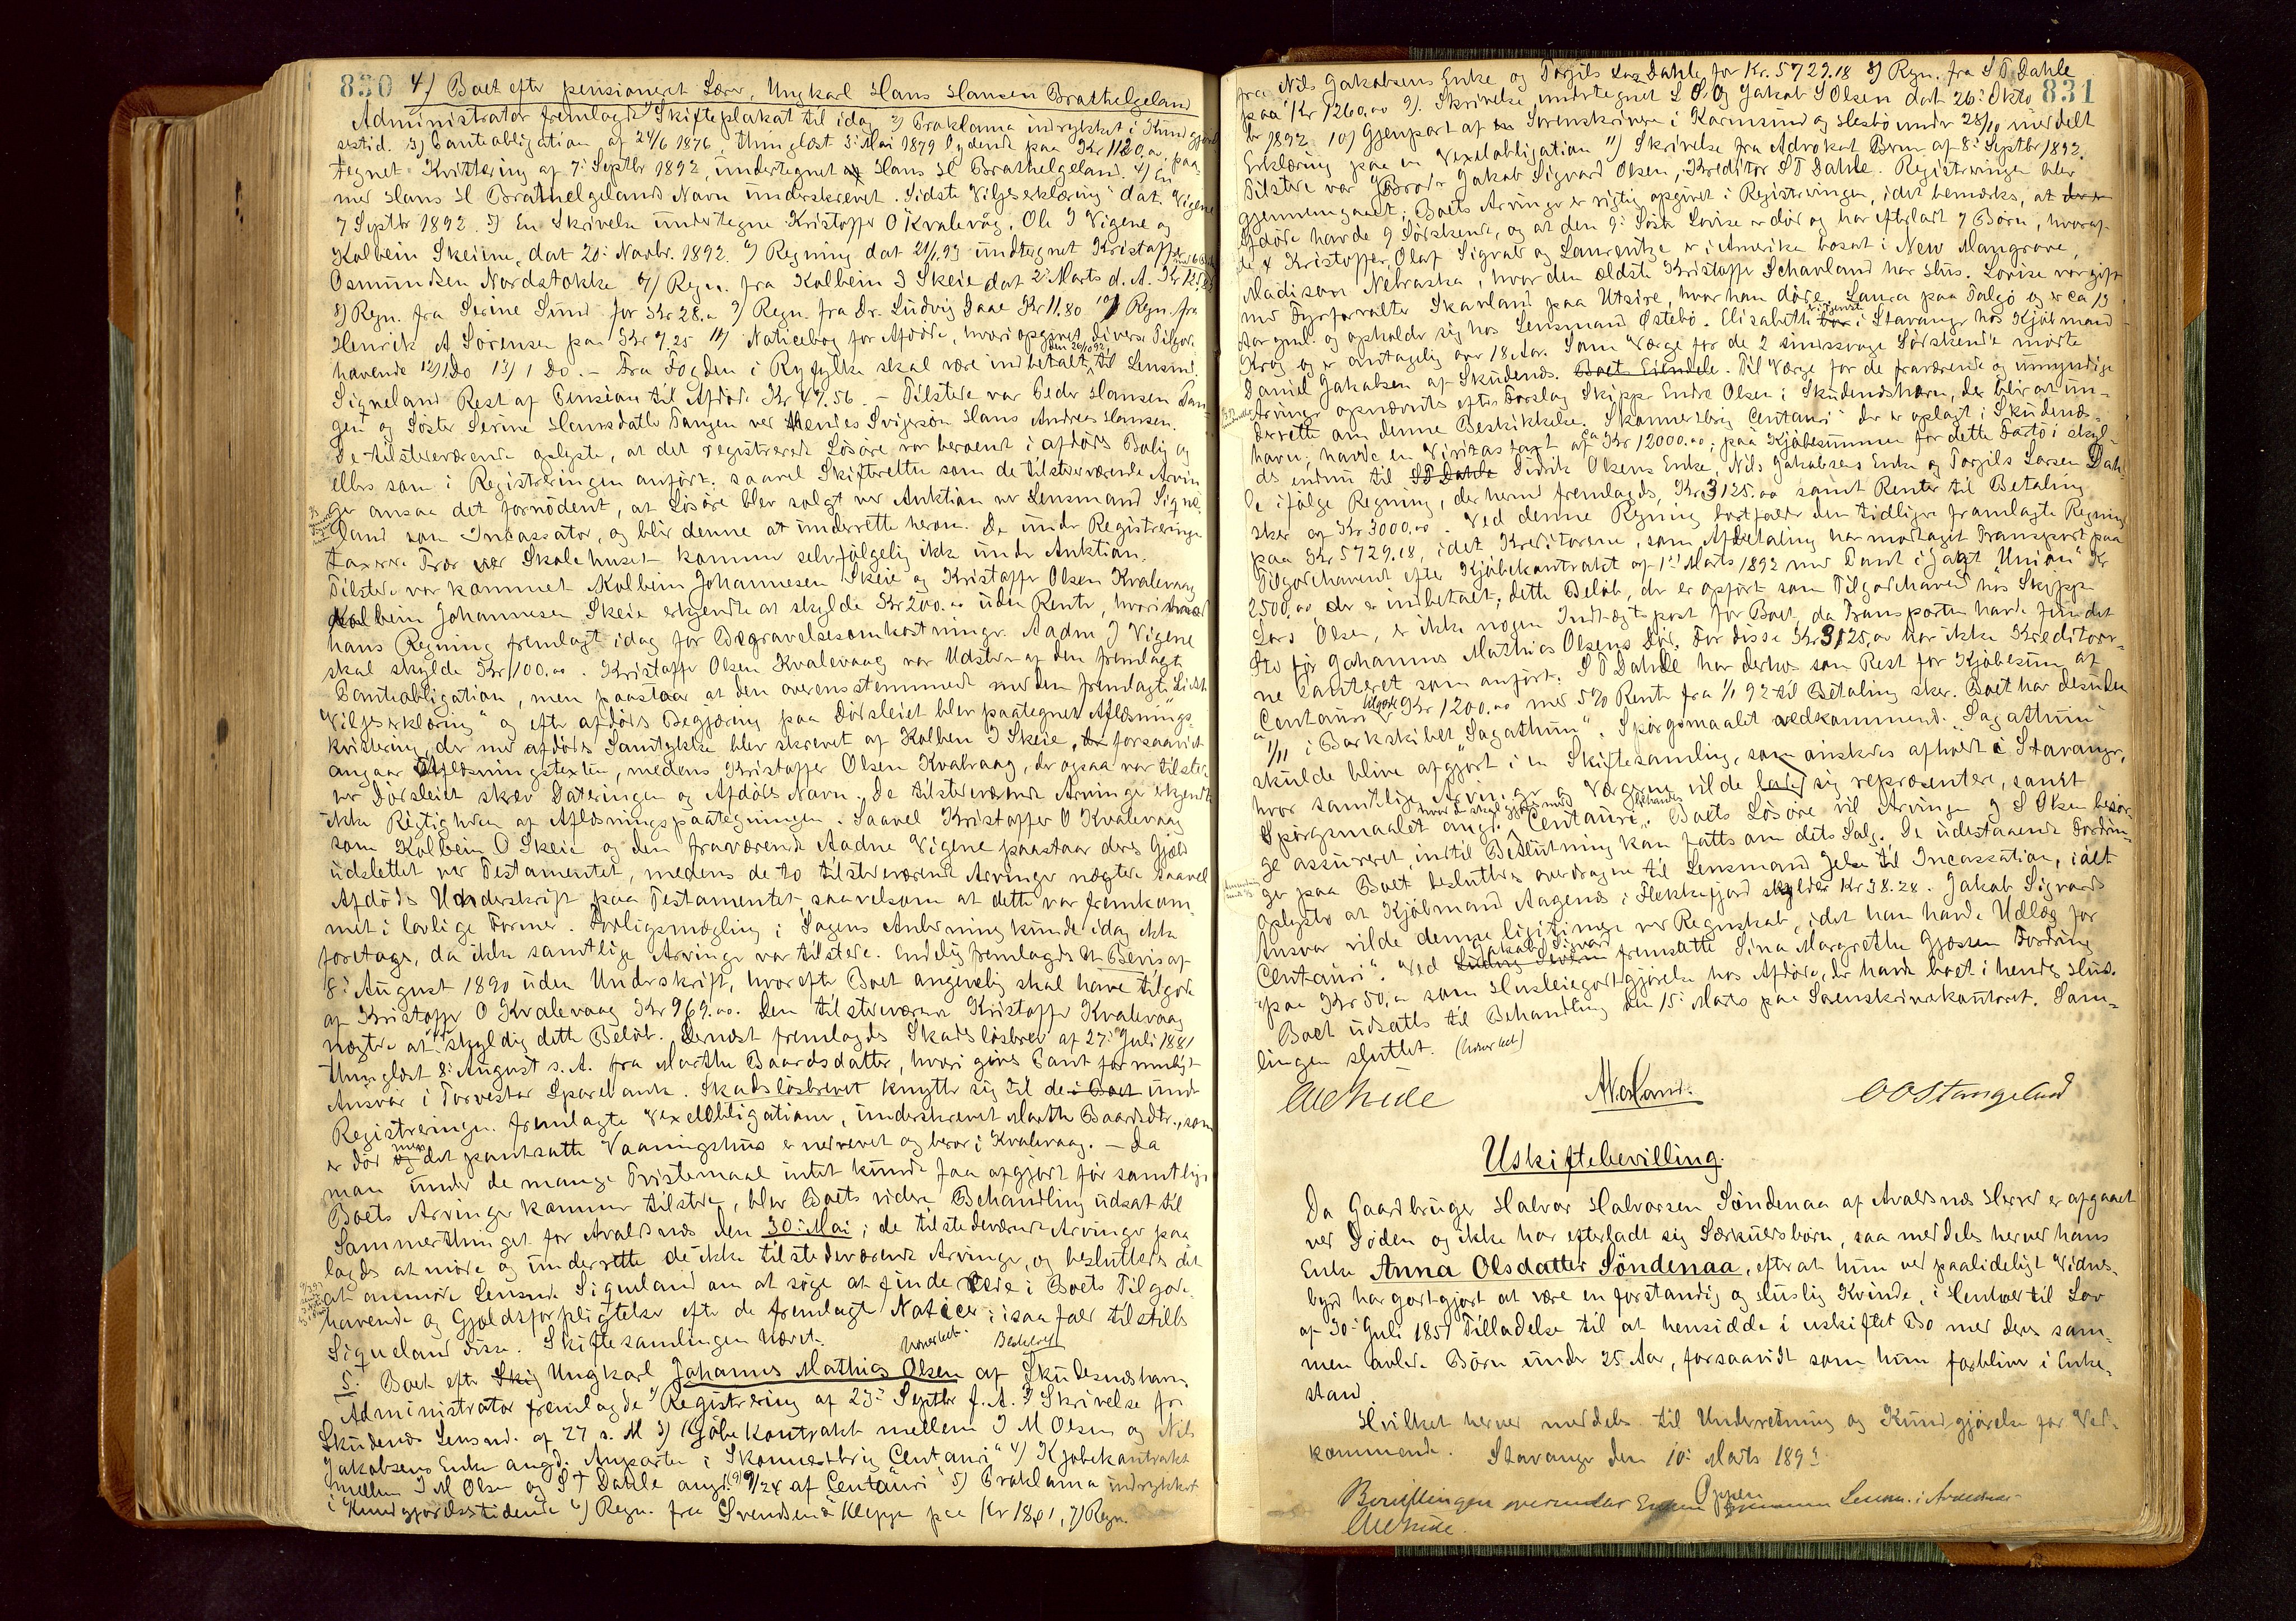 830
4) Boet efter pensioneret Lærer, Ungkarl Hans Hansen Brathelgeland
Administrator fremlagde 1) Skifteplakat til idag 2) Proklama indrykket i Kundgjørel
sestid. 3) Panteobligation af 24/6 1876, thinglæst 3: Mai 1879 lydende paa Kr 1120,00, paa-
tegnet Kvittering af 7: Septbr 1892, undertegnet af Hans H Brathelgeland. 4) En
med Hans H Brathelgelands Navn underskrevet "Sidste Viljeserklæring" dat. Vigene
7 Septbr 1892. 5) En Skrivelse undertegne Kristoffer O Kvalevåg, Ole J Vigene og
Kolbein Skeiene, dat 20: Novbr. 1892. 6) Regning dat 21/1 93 undtegnet Kristoffer
Osmundsen Nordstokke 7) Regn. fra Kolbein J Skeie dat 2: Marts d. A. Kr
8) Regn. fra Serine Sund for Kr 28.00 9) Regn. fra Dr. Ludvig Daae Kr 11.80 10) Regn. fra
Henrik A Sørensen paa Kr 7.25 11) Noticebog for Afdøde, hvori opgivet diverse Tilgode
havende 12) 1 Do 13) 1 Do. – Fra Fogden i Ryfylke skal være indbetalt den 26/10 92 til Lensmd.
Siqveland Rest af Pension til Afdøde Kr 47.56. – Tilstede var Peder Hansen Tan-
gen og Søster Serine Hansdatter Tangen ved Hendes Svigersøn Hans Andreas Hansen.
De tilstedeværende oplyste, at det registrerede Løsøre var beroende i afdødes Bolig og
ellers som i Registreringen anført. Saavel Skifteretten som de tilstedeværende Arvin
ger ansaa det fornødent, at Løsøre blev solgt ved Auktion ved Lensmand Siqve
land som Incassator, og blir denne at underrette herom. De under Registreringen
taxerede Træer ved Skolehuset kommer selvfølgelig ikke under Auktion.
Tilstede var kommet Kolbein Johannesen Skeie og Kristoffer Olsen Kvalevaag
Kolbein Johannesen Skeie erkjendte at skylde Kr 200.00 uden Rente, hvori
hans Regning fremlagt idag for Begravelsesomkostninger. Aadne J Vigene
skal skylde Kr 100,00. Kristoffer Olsen Kvalevaag var Udsteder af den fremlagte
Panteobligation, men paastaar at den overensstemmende med den fremlagte "Sidste
Viljeserklæring" og efter afdødes Begjæring paa Dødsleiet blev paategnet Aflæsnings-
kvittering, der med afdødes Samtykke blev skrevet af Kolbein J Skeie, forsaavidt
angaar Aflæsningstexten, medens Kristoffer Olsen Kvalevaag, der ogsaa var tilstede
ved Dødsleiet skrev Dateringen og Afdødes Navn. De tilstedeværende Arvinger erkjendte
ikke Rigtigheden af Aflæsningspaategningen. Saavel Kristoffer O Kvalevaag
som Kolbein O Skeie og den fraværende Aadne Vigene paastaar deres Gjæld
udslettet ved Testamentet, medens de to tilstedeværende Arvinger nægtede saavel
Afdødes Underskrift paa Testamentet, saavelsom at dette var fremkom-
met i lovlige Former. Forligsmægling i Sagens Anledning kunde idag ikke
foretages, da ikke samtlige Arvinger var tilstede. Endelig fremlagdes et Bevis af
8: August 1890 uden Underskrift, hvorefter Boet angivelig skal have tilgode
af Kristoffer O Kvalevaag Kr 969.00. Den tilstedeværende Kristoffer Kvalevaag
nægtede at skyldig dette Beløb. Dernæst fremlagdes Skadesløsbrev af 27: Juli 1881
thinglæst 8: August s. A. fra Marthe Baardsdatter, hvori gives Pant for muligt
Ansvar i Torvestad Sparebank. Skadesløsbrevet knytter sig til de i Boet under
Registreringen fremlagte Vexelobligationer, underskrevet Marthe Baardsdtr., som
er død men det pantsatte Vaaningshus er nedrevet og beror i Kvalevaag. – Da
man under de mange Tvistemaal intet kunde faa afgjort før samtlige
Boets Arvinger kommer tilstede, blev Boets videre Behandling udsat til
Sommerthinget for Avaldsnæs den 30: Mai; de tilstedeværende Arvinger paa
lagdes at møde og underrette de ikke tilstedeværende Arvinger, og besluttedes det
at anmode Lensmd. Siqveland om at søge at finde Rede i Boets Tilgode-
havende og Gjældsforpligtelser efter de fremlagte Noticer; i saa fald tilstilles
Siqveland disse. Skiftesamlingen hævet.
5. Boet efter Skip Ungkarl Johannes Mathias Olsen af Skudesnæshavn.
Administrator fremlagde 1) Registrering af 23: Septbr f. A. 2) Skrivelse fra
Skudenæs Lensmd. af 27 s. M 3) Kjøbekontrakt mellem J M Olsen og Nils
Jakobsens Enke angd. Anparter i Skonnertbrig "Centauri" 4) Kjøbekontrakt
mellem J M Olsen og S T Dahle angd. (9) 9/24 af Centauri" 5) Proklama indrykket
i Kundgjørelsestidende 6) Regn. fra Svendsen & Kleppe paa Kr 18,01, 7) Regn.
831
fra Nils Jakobsens Enke og Torgils Lars. Dahle for Kr. 5729.18 8) Regn. fra S T Dahle
paa Kr 1260,00 9) Skrivelse undertegnet L O og Jakob S Olsen dat 26: Okto
br 1892 10) Gjenpart af Sorenskriveren i Karmsund og Hesbø under 28/10 meddelt
Erklæring paa en Vexelobligation 11) Skrivelse fra Advokat Brun af 8: Septbr 1892.
Tilstede var Broder Jakob Sigvard Olsen, Kreditor S T Dahle. Registreringen blev
gjennemgaaet; Boets Arvinger er rigtig opgivet i Registreringen, idet bemærkes, at der er
Afdøde havde 9 Sødskende, og at den 9: Søster Lovise er død og har efterladt 7 Børn, hvoraf
de 4 Kristoffer, Olaf, Sigvald og Laurentze er i Amerika bosat i New Mangrove,
Madison Nebraska, hvor den ældste Kristoffer Schavland har Hus. Lovise var gift
med Fyrforvalter Skavland paa Utsire, hvor han døde. Laura paa Talgø og er ca 13
Aar gml. og opholder sig hos Lensmand Østebø. Elisabeth tjenende i Stavanger hos Kjøbmand
Krog og er antagelig over 18 Aar. Som Værge for de 2 sindssvage Sødskende mødte
Daniel Jakobsen af Skudenæs. Boet Eiendele. Til Værge for de fraværende og umyndige
Arvinger opnævntes efter Forslag Skipper Endre Olsen i Skudenæshavn, der blir at un-
derrette om denne Beskikkelse. Skonnertbrig "Centauri" der er oplagt i Skudenæs-
havn, havde en Viritastaxt af ca Kr 12000.00; paa Kjøbesummen for dette Fartøi skyl-
des endnu til ST Dahle Didrik Olsens Enke, Nils Jakobsens Enke og Torgils Larsen Dah-
le ifølge Regning, der herved fremlagdes, Kr 3125.00 samt Renter til Betaling
sker af Kr 3000.00. Ved denne Regning bortfalder den tidligere fremlagte Regning
paa Kr 5729.18, idet Kreditorene, som Afbetaling har modtaget Transport paa
Tilgodehavende efter Kjøbekontrakt af 1ste Marts 1892 med Pant i Jagt "Union" Kr
2500,00 der er indbetalt; dette Beløb, der er opført som Tilgodehavende hos Skipper
Lars Olsen, er ikke nogen Indtægtspost for Boet, da Transporten havde fundet
Sted før Johannes Mathias Olsens Død. For disse Kr 3125,00 har ikke Kreditorer-
ne panteret som anført. S T Dahle har derhos som Rest for Kjøbesum af
"Centauri" tilgode Kr 1200.00 med 5% Rente fra 1/1 92 til Betaling sker. Boet har desuden
1/11 i Barkskibet "Sagathun". Spørgsmaalet vedkommende "Sagathun"
skulde blive afgjort i en Skiftesamling, som ønskedes afholdt i Stavanger,
hvor samtlige Arvinger og Værgerne vilde lade sig repræsentere, samt
Spørgsmaalet angd. hvad der skal gjøres med "Centauri" behandles. Boets Løsøre vil Arvingen J S Olsen besør-
ge assureret, indtil Beslutning kan fattes om dets Salg. De udestaaende Fordrin-
ger paa Boet besluttedes overdragne til Lensmand Jelsa til Incassation, ialt
oplyste at Kjøbmand Aagenæs i Flekkefjord skylder Kr 38.28. Jakob Sigvards
Ansvar vilde denne legitimere ved Regnskab, idet han havde Udlæg for
Centauri". Ved Jakob Sigvard fremsatte Sina Margrethe Gjøssen Fordring
paa Kr 50.00 som Husleiegodtgjørelse hos Afdøde, der havde boet i hendes Hus.
Boet udsattes til Behandling den 15: Marts paa Sorenskriverkontoret. Sam-
lingen sluttet.
OOStangeland
Uskiftebevilling.
Da Gaardbruger Halvor Halvorsen Søndenaa af Avaldsnæs Herred er afgaaet
ved Døden og ikke har efterladt sig Særkuldsbørn, saa meddeles herved hans
Enke Anna Olsdatter Søndenaa, efterat hun ved paalideligt Vidnes-
byrd har godtgjort at være en forstandig og huslig Kvinde, i Henhold til Lov
af 30: Juli 1851 Tilladelse til at hensidde i uskiftet Bo med deres sam-
men avlede Børn under 25 Aar, forsaavidt som hun forbliver i Enke-
stand.
Hvilket herved meddeles til Underretning og Kundgjørelse for Ved-
kommende. Stavanger den 10: Marts 1893.
Bevillingen oversendes Lensm. i Avaldsnæs